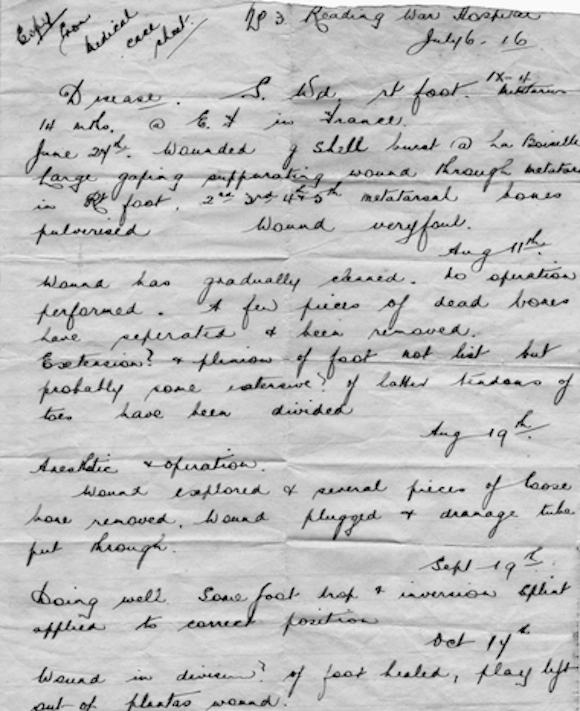 Copy from medical case sheet.
No 3. Reading War Hospital
July 6 - 16
Disease. S. Wd. rt foot. IX-4 metatarsus
14 mths. @ E. F in France.
June 24th. Wounded g shell burst @ La Boiselle
Large gaping suppurating wound through metatars
in Rt foot, 2nd 3rd 4th & 5th metatarsal bones
pulverised Wound very foul.
Aug 11th.
Wound has gradually cleaned. No operation
performed. A few pieces of dead bones
have seperated & been removed.
Extension? & of foot not lost but
probably some extensive? of latter tendons of
toes have been divided
Aug 19th.
Anesthetic & operation.
Wound explored & several pieces of loose
bone removed. Wound plugged & dranage tube
put through.
Sept 19th.
Doing well. Some foot drop & inversion splint
applied to correct position
Oct 14th
Wound in division? of foot healed, play left
out of plantas wound.